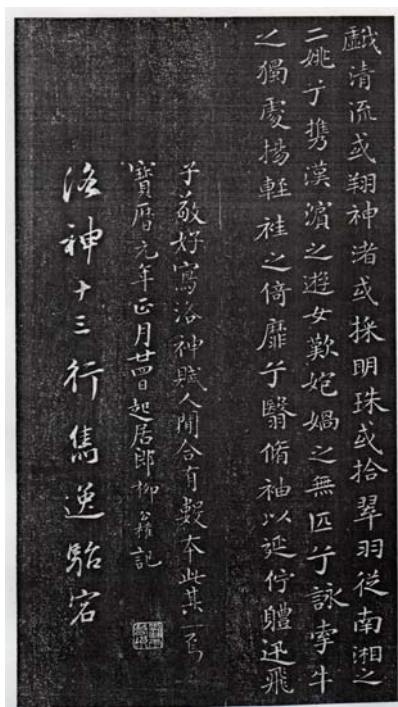 戲清流或翔神渚或採明珠或拾翠羽從南湘之
二姚兮攜漢濱之遊女歎炮媧之無匹兮詠牽牛
之獨處揚輕袿之倚靡兮翳脩袖以延佇軆迅飛
子敬好寫洛神賦人間合有數本此其一焉
寶曆元年正月廿四日起居郎柳公權記
洛神十三行雋逸駘宕